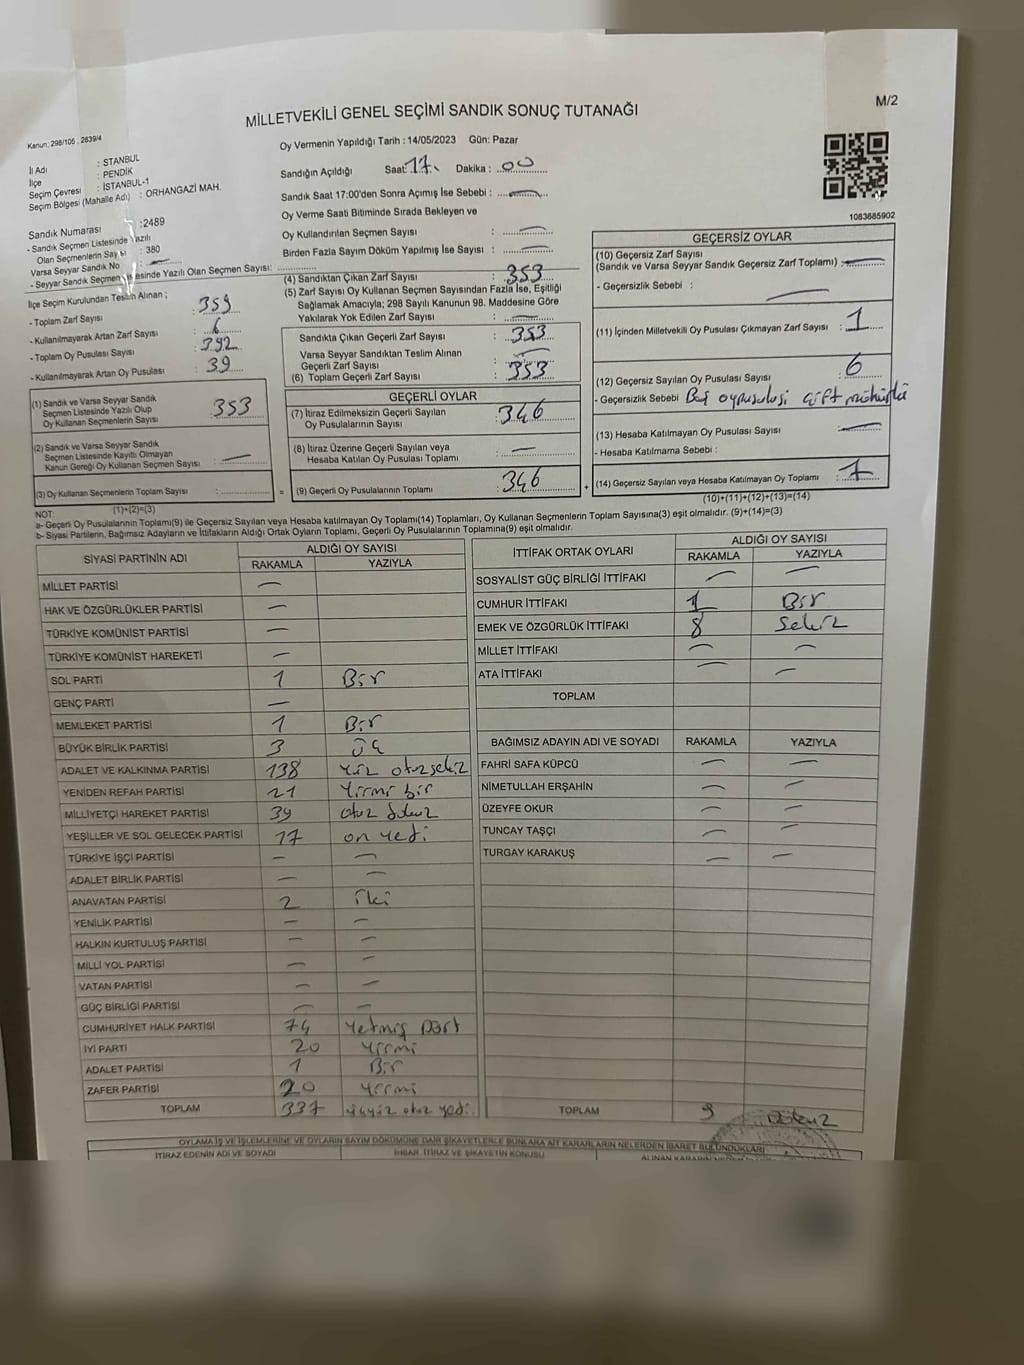 M/2
MİLLETVEKİLİ GENEL SEÇİMİ SANDIK SONUÇ TUTANAĞI
Kanun; 298/105 , 2839/4
İl Adı : STANBUL
İlçe : PENDİK
Seçim Çevresi : İSTANBUL-1
Seçim Bölgesi (Mahalle Adı) : ORHANGAZİ MAH.
Sandık Numarası :2489
- Sandık Seçmen Listesinde Yazılı
Olan Seçmenlerin Sayısı : 380
Varsa Seyyar Sandık No : —
- Seyyar Sandık Seçmen Listesinde Yazılı Olan Seçmen Sayısı:
İlçe Seçim Kurulundan Teslim Alınan ;
- Toplam Zarf Sayısı : 359
- Kullanılmayarak Artan Zarf Sayısı : 6
- Toplam Oy Pusulası Sayısı : 392
- Kullanılmayarak Artan Oy Pusulası : 39
(1) Sandık ve Varsa Seyyar Sandık
Seçmen Listesinde Yazılı Olup
Oy Kullanan Seçmenlerin Sayısı : 353
(2) Sandık ve Varsa Seyyar Sandık
Seçmen Listesinde Kayıtlı Olmayan
Kanun Gereği Oy Kullanan Seçmen Sayısı : —
(3) Oy Kullanan Seçmenlerin Toplam Sayısı :
(1)+(2)=(3)
Oy Vermenin Yapıldığı Tarih : 14/05/2023 Gün: Pazar
Sandığın Açıldığı Saat: 17. Dakika : 00
Sandık Saat 17:00'den Sonra Açımış İse Sebebi : —
Oy Verme Saati Bitiminde Sırada Bekleyen ve
Oy Kullandırılan Seçmen Sayısı : —
Birden Fazla Sayım Döküm Yapılmış İse Sayısı : —
(4) Sandıktan Çıkan Zarf Sayısı : 353
(5) Zarf Sayısı Oy Kullanan Seçmen Sayısından Fazla İse, Eşitliği
Sağlamak Amacıyla; 298 Sayılı Kanunun 98. Maddesine Göre
Yakılarak Yok Edilen Zarf Sayısı : —
Sandıkta Çıkan Geçerli Zarf Sayısı : 353
Varsa Seyyar Sandıktan Teslim Alınan
Geçerli Zarf Sayısı : —
(6) Toplam Geçerli Zarf Sayısı : 353
GEÇERLİ OYLAR
(7) İtiraz Edilmeksizin Geçerli Sayılan
Oy Pusulalarının Sayısı : 346
(8) İtiraz Üzerine Geçerli Sayılan veya
Hesaba Katılan Oy Pusulası Toplamı : —
= (9) Geçerli Oy Pusulalarının Toplamı : 346 +
1083685902
GEÇERSİZ OYLAR
(10) Geçersiz Zarf Sayısı
(Sandık ve Varsa Seyyar Sandık Geçersiz Zarf Toplamı) : —
- Geçersizlik Sebebi : —
(11) İçinden Milletvekili Oy Pusulası Çıkmayan Zarf Sayısı : 1
(12) Geçersiz Sayılan Oy Pusulası Sayısı : 6
- Geçersizlik Sebebi oy pusulası çift mühürlü
(13) Hesaba Katılmayan Oy Pusulası Sayısı : —
- Hesaba Katılmama Sebebi :
(14) Geçersiz Sayılan veya Hesaba Katılmayan Oy Toplamı : 7
(10)+(11)+(12)+(13)=(14)
NOT:
a- Geçerli Oy Pusulalarının Toplamı(9) ile Geçersiz Sayılan veya Hesaba katılmayan Oy Toplamı(14) Toplamları, Oy Kullanan Seçmenlerin Toplam Sayısına(3) eşit olmalıdır. (9)+(14)=(3)
b- Siyasi Partilerin, Bağımsız Adayların ve İttifakların Aldığı Ortak Oyların Toplamı, Geçerli Oy Pusulalarının Toplamına(9) eşit olmalıdır.
SİYASİ PARTİNİN ADI ALDIĞI OY SAYISI
RAKAMLA YAZIYLA
MİLLET PARTİSİ —
HAK VE ÖZGÜRLÜKLER PARTİSİ —
TÜRKİYE KOMÜNİST PARTİSİ —
TÜRKİYE KOMÜNİST HAREKETİ —
SOL PARTİ 1 Bir
GENÇ PARTİ —
MEMLEKET PARTİSİ 1 Bir
BÜYÜK BİRLİK PARTİSİ 3 üç
ADALET VE KALKINMA PARTİSİ 138 yüz otuzsekiz
YENİDEN REFAH PARTİSİ 21 Yirmi bir
MİLLİYETÇİ HAREKET PARTİSİ 39 otuz dokuz
YEŞİLLER VE SOL GELECEK PARTİSİ 17 on yedi
TÜRKİYE İŞÇİ PARTİSİ — —
ADALET BİRLİK PARTİSİ — —
ANAVATAN PARTİSİ 2 iki
YENİLİK PARTİSİ — —
HALKIN KURTULUŞ PARTİSİ — —
MİLLİ YOL PARTİSİ — —
VATAN PARTİSİ — —
GÜÇ BİRLİĞİ PARTİSİ — —
CUMHURİYET HALK PARTİSİ 74 Yetmiş Dört
İYİ PARTİ 20 yirmi
ADALET PARTİSİ 1 Bir
ZAFER PARTİSİ 20 yirmi
TOPLAM 337 üçyüz otuz yedi
İTTİFAK ORTAK OYLARI ALDIĞI OY SAYISI
RAKAMLA YAZIYLA
SOSYALİST GÜÇ BİRLİĞİ İTTİFAKI — —
CUMHUR İTTİFAKI 1 Bir
EMEK VE ÖZGÜRLÜK İTTİFAKI 8 Sekiz
MİLLET İTTİFAKI — —
ATA İTTİFAKI — —
TOPLAM
BAĞIMSIZ ADAYIN ADI VE SOYADI RAKAMLA YAZIYLA
FAHRİ SAFA KÜPCÜ — —
NİMETULLAH ERŞAHİN — —
ÜZEYFE OKUR — —
TUNCAY TAŞÇI — —
TURGAY KARAKUŞ — —
TOPLAM 9 Dokuz
OYLAMA İŞ VE İŞLEMLERİNE VE OYLARIN SAYIM DÖKÜMÜNE DAİR ŞİKAYETLERLE BUNLARA AİT KARARLARIN NELERDEN İBARET BULUNDUKLARI
İTİRAZ EDENİN ADI VE SOYADI İHBAR, İTİRAZ VE ŞİKAYETİN KONUSU